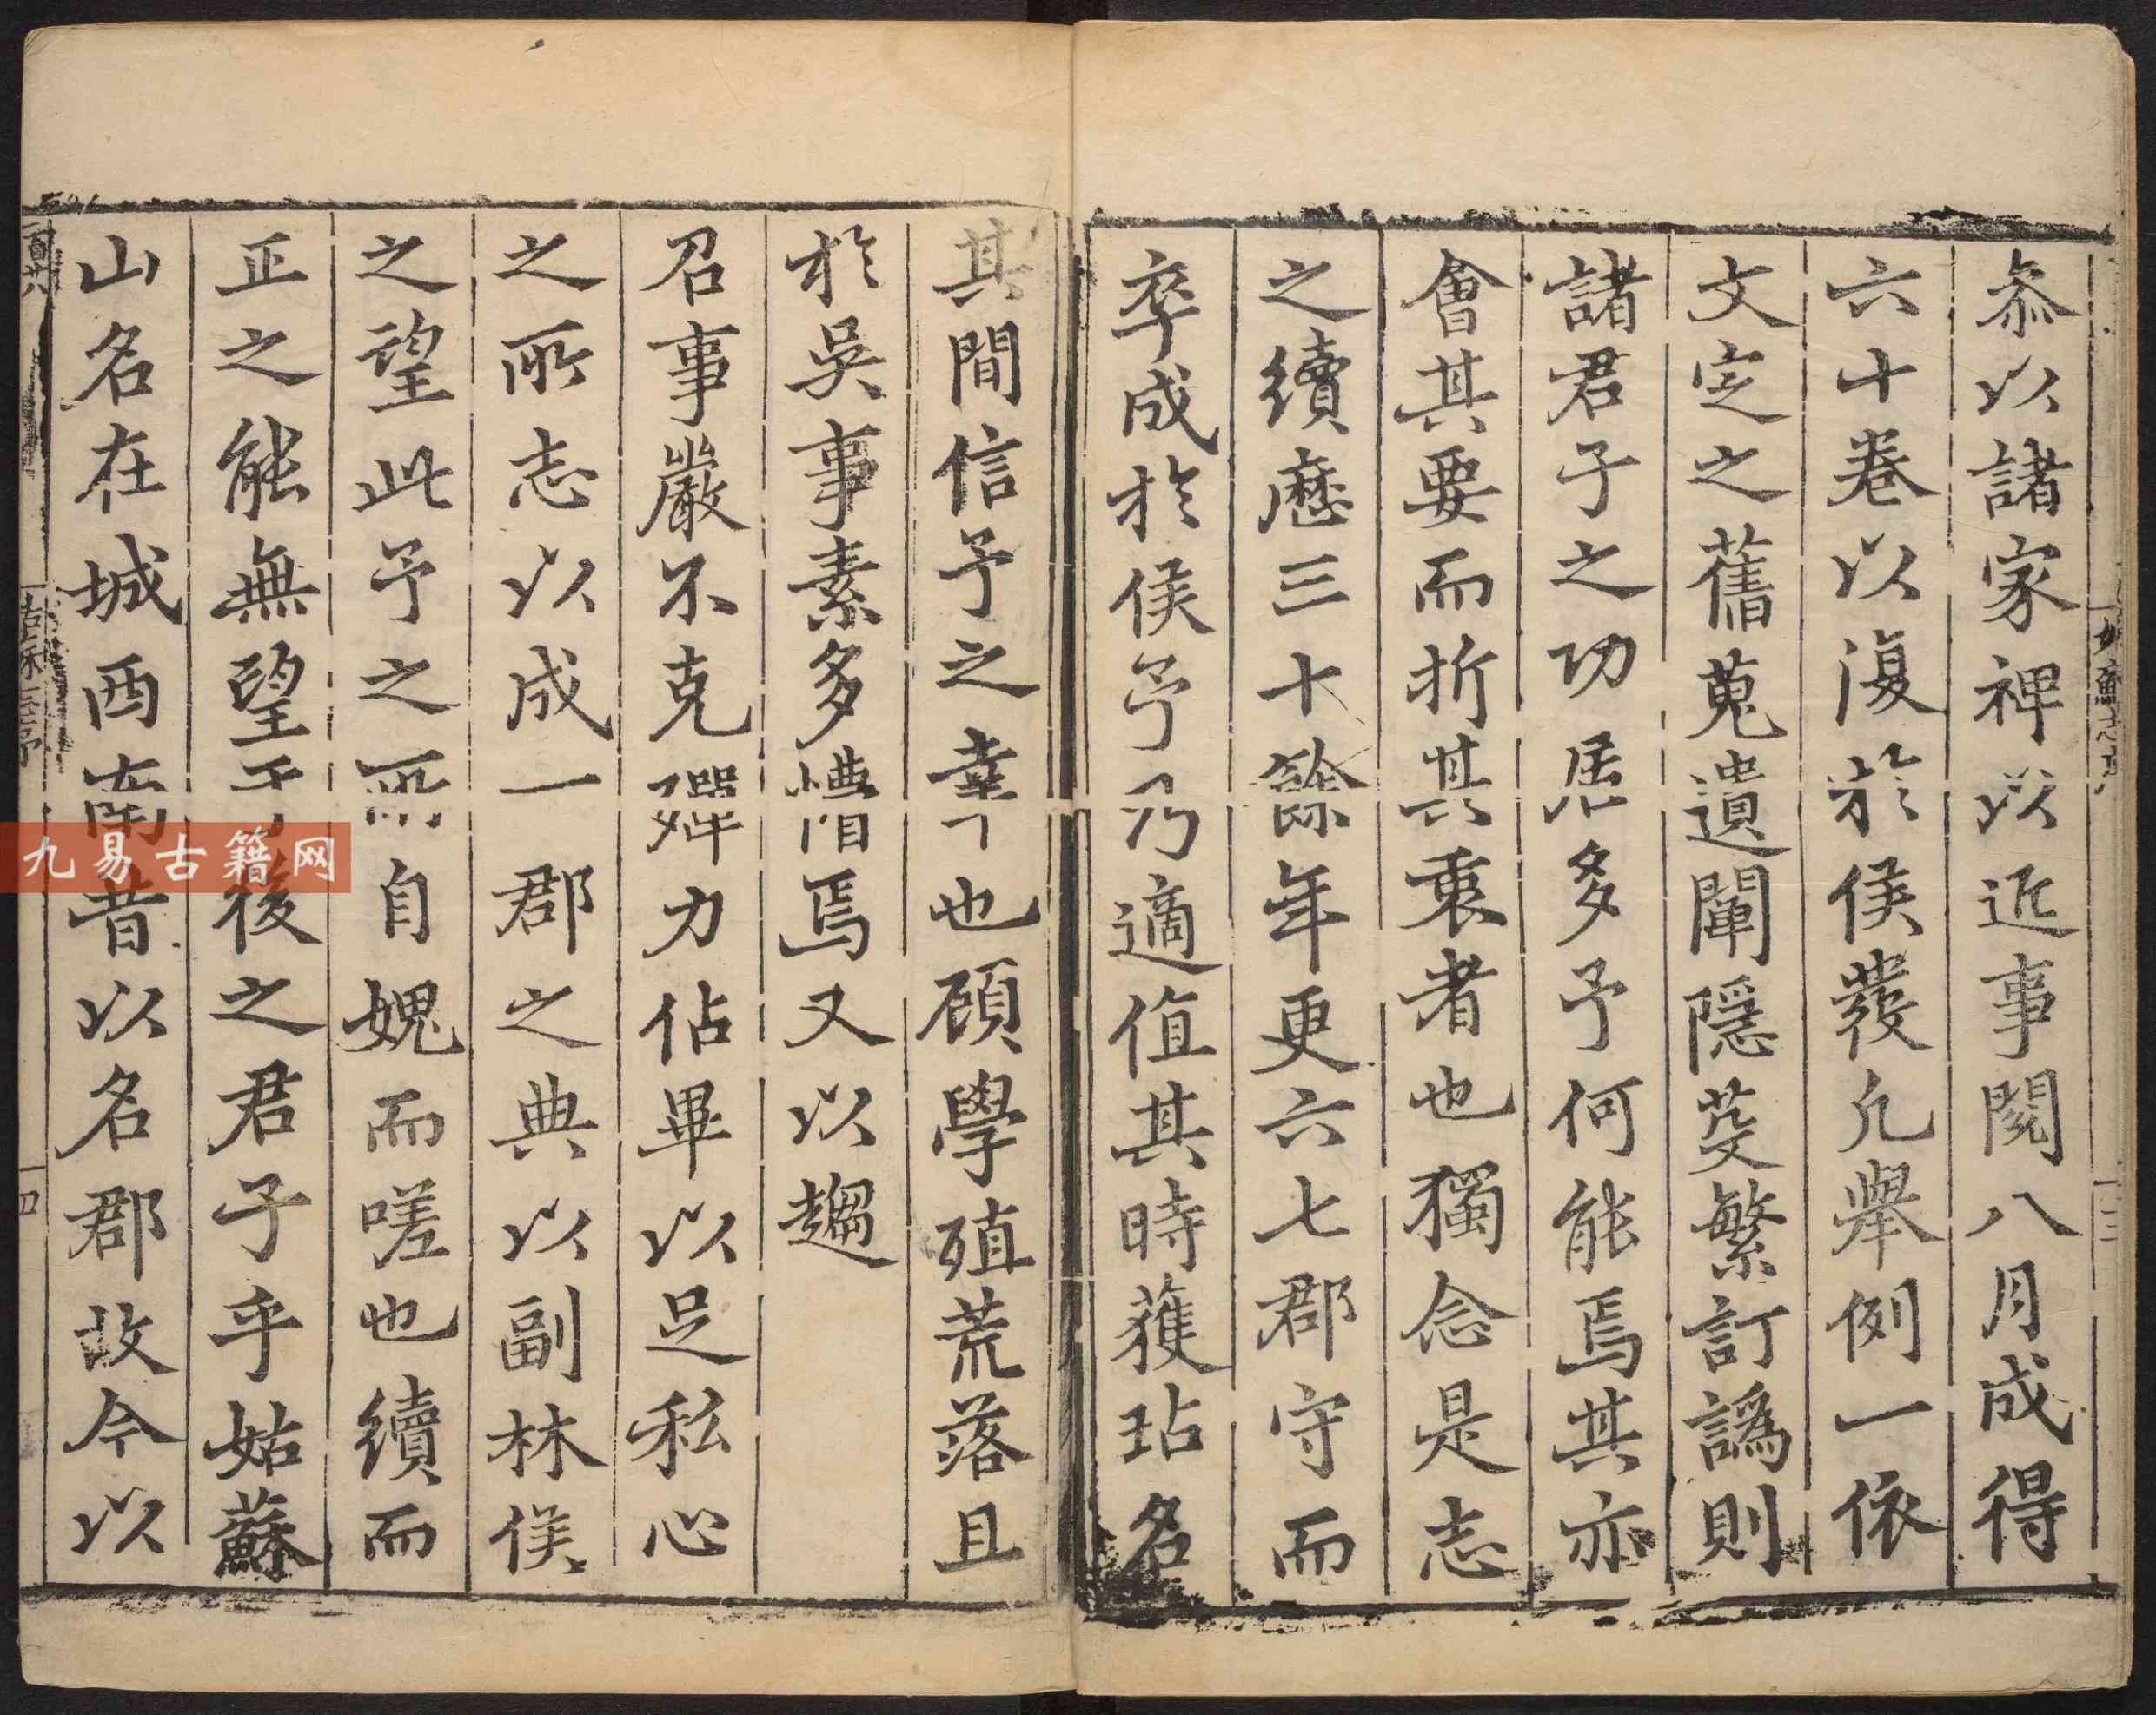 叅以諸家裨以近事閱八月成得
六十卷以復於侯發凡舉例一依
文定之舊蒐遺闡隱芟繁訂譌則
諸君子之功居多予何能焉其亦
會其要而折其衷者也獨念是志
之續歷三十餘年更六七郡守而
卒成於侯予乃適值其時獲玷名
其間信予之幸也顧學殖荒落且
於吳事素多懵焉又以趨
召事嚴不克殫力佔畢以足私心
之所志以成一郡之典以副林侯
之望此予之所自媿而嗟也續而
正之能無望于後之君子乎姑蘇
山名在城西南昔以名郡故今以
姑蘇志序
四
九易古籍网